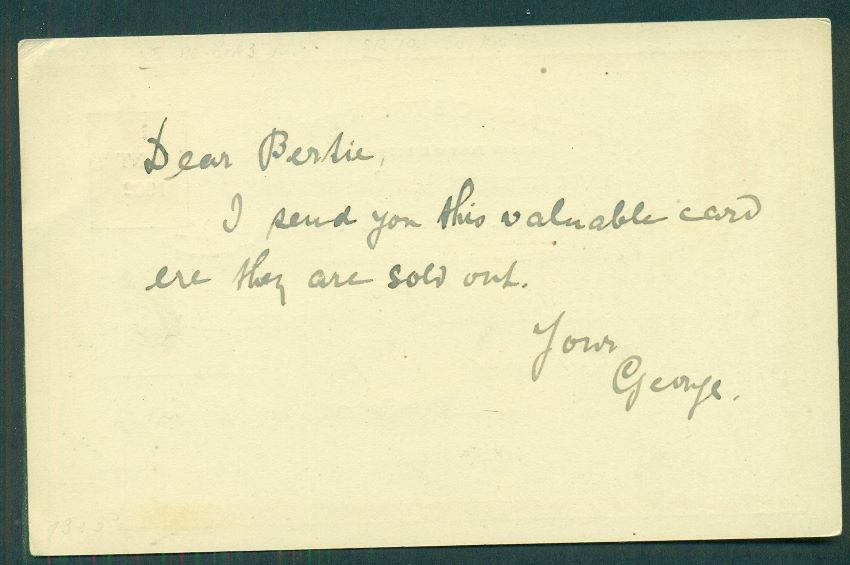 Dear Bertie,
I send you this valuable card
ere they are sold out.
Yours
George.